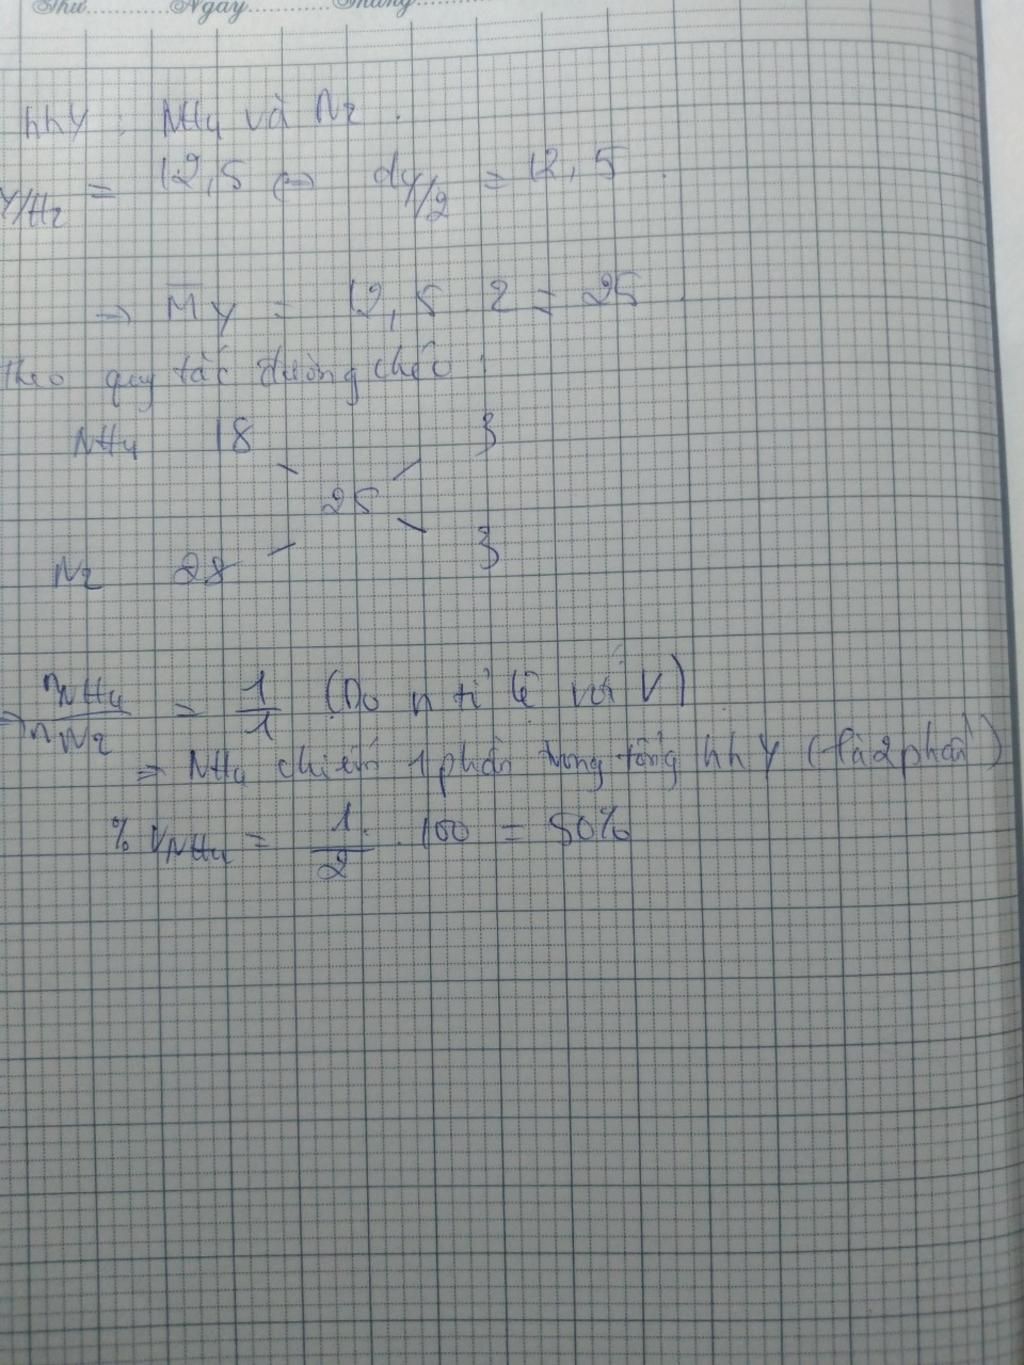 Thứ............Ngày............Tháng............
hhY : NH4 và N2 .
Y/H2 = 12,5 ⇔ dY/2 = 12,5 .
⇒ M̅Y = 12,5 . 2 = 25
theo quy tắc đường chéo :
NH4 18 3
25
N2 28 3
⇒ nNH4/nN2 = 1/1 (Do n tỉ lệ với V)
⇒ NH4 chiếm 1 phần trong tổng hhY (là 2 phần)
% VNH4 = 1/2 . 100 = 50%